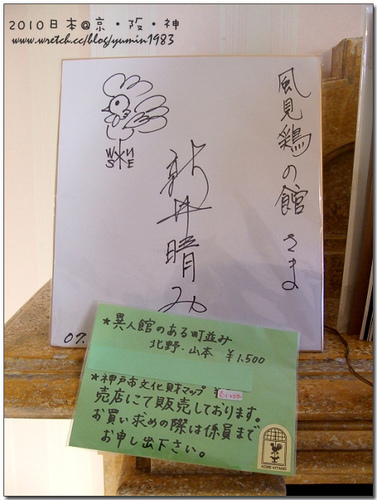 2010日本@京・阪・神
www.wretch.cc/blog/yumin1983
風見鶏の館 さま
W N
S E
新井晴み
07.
★異人館のある町並み
北野・山本 ¥1.500
★神戸市文化財マップ ¥
売店にて販売しております。
お買い求めの際は係員まで
お申し出下さい。
KOBE KITANO